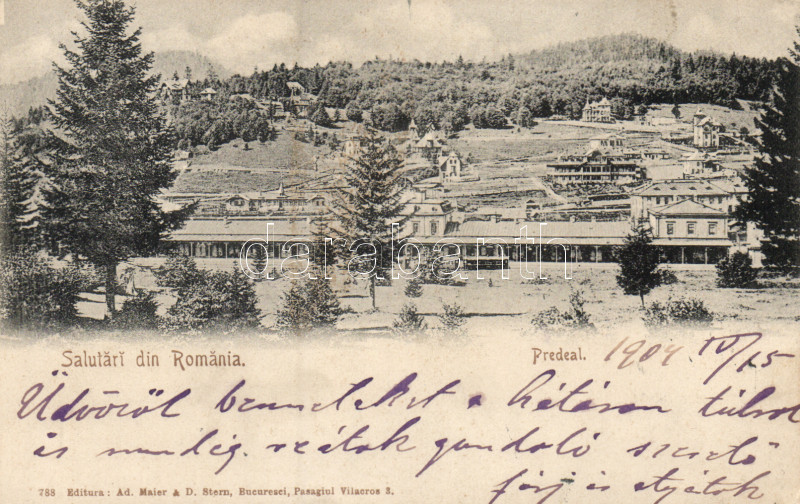 databanth
Salutări din România.
Predeal.
1904 IV/15
Üdvözöl benneteket a határon túlról
és mindég reátok gondoló szerető
férj és atyátok
788 Editura: Ad. Maier & D. Stern, Bucuresci, Pasagiul Vilacros 3.